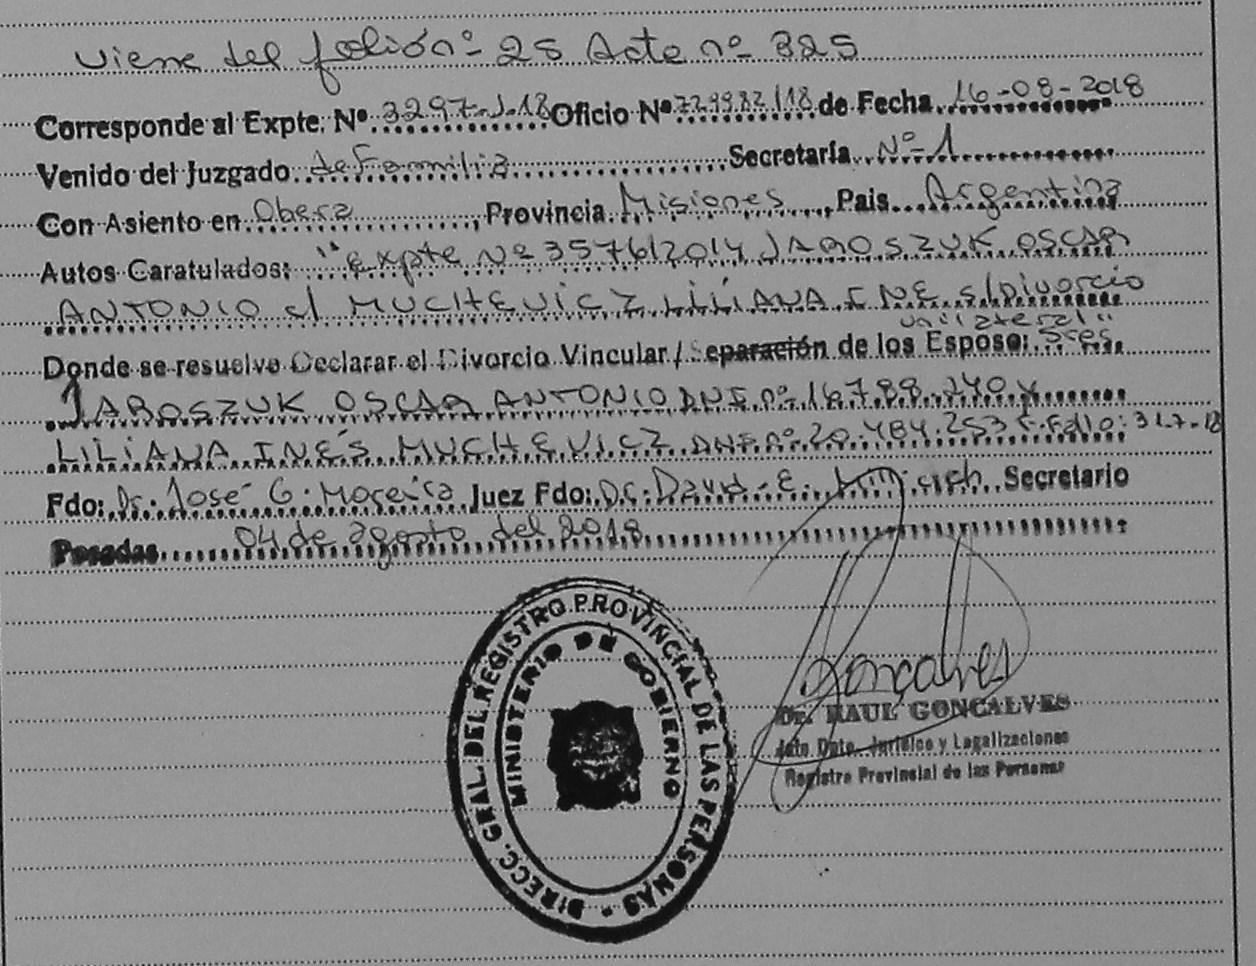 Viene del folio nº 25 Acta nº 325
Corresponde al Expte. Nº 3297-J-18 Oficio Nº 729982/18 de Fecha 16-08-2018
Venido del Juzgado de Familia Secretaría Nº 1
Con Asiento en Obera, Provincia Misiones, Pais Argentina
Autos Caratulados: "Expte Nº 35761/2014 JAROSZUK OSCAR
ANTONIO c/ MUCHEVICZ LILIANA INE s/Divorcio
unilateral"
Donde se resuelve Declarar el Divorcio Vincular / Separación de los Esposo: Sres.
JAROSZUK OSCAR ANTONIO DNI nº 16.788.740 y
LILIANA INÉS MUCHEVICZ DNI nº 20.484.253 F. Fallo: 31-7-18
Fdo: Dr. José G. Moreira Juez Fdo: Dr. David E. Secretario
Posadas 04 de agosto del 2018
DIRECC. GRAL. DEL REGISTRO PROVINCIAL DE LAS PERSONAS
MINISTERIO DE GOBIERNO
Goncalves
Dr. RAUL GONCALVES
Jefe Dpto. Jurídico y Legalizaciones
Registro Provincial de las Personas